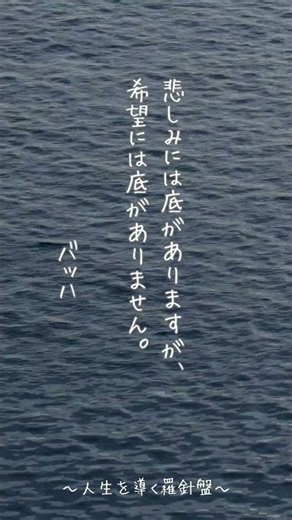 悲しみには底がありますが、
希望には底がありません。
バッハ
～人生を導く羅針盤～